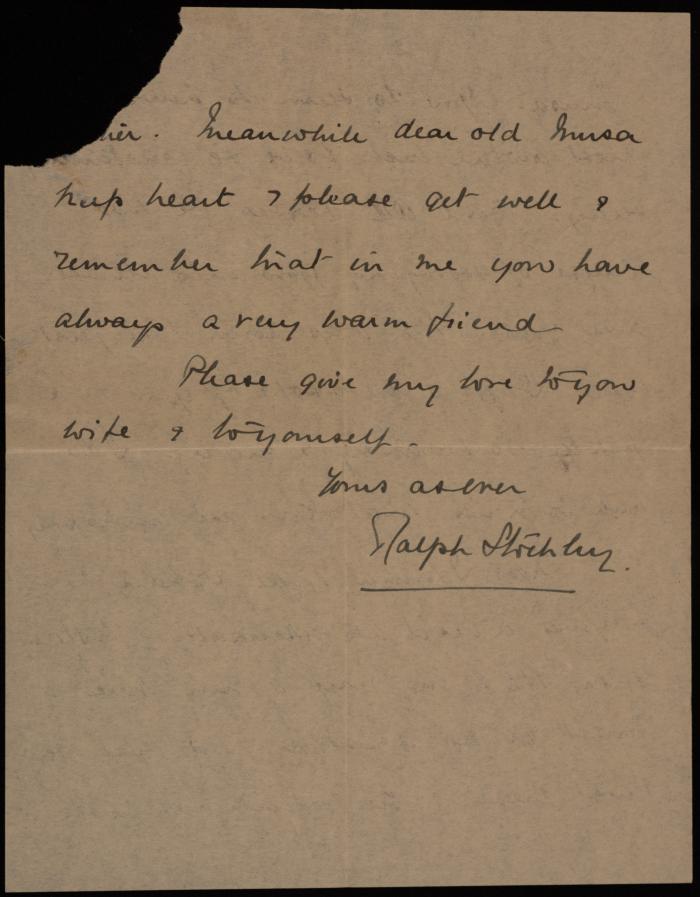 Meanwhile dear old Musa
keep heart & please get well &
remember that in me you have
always a very warm friend
Please give my love to your
wife & to yourself.
Yours as ever
Ralph Stockley.